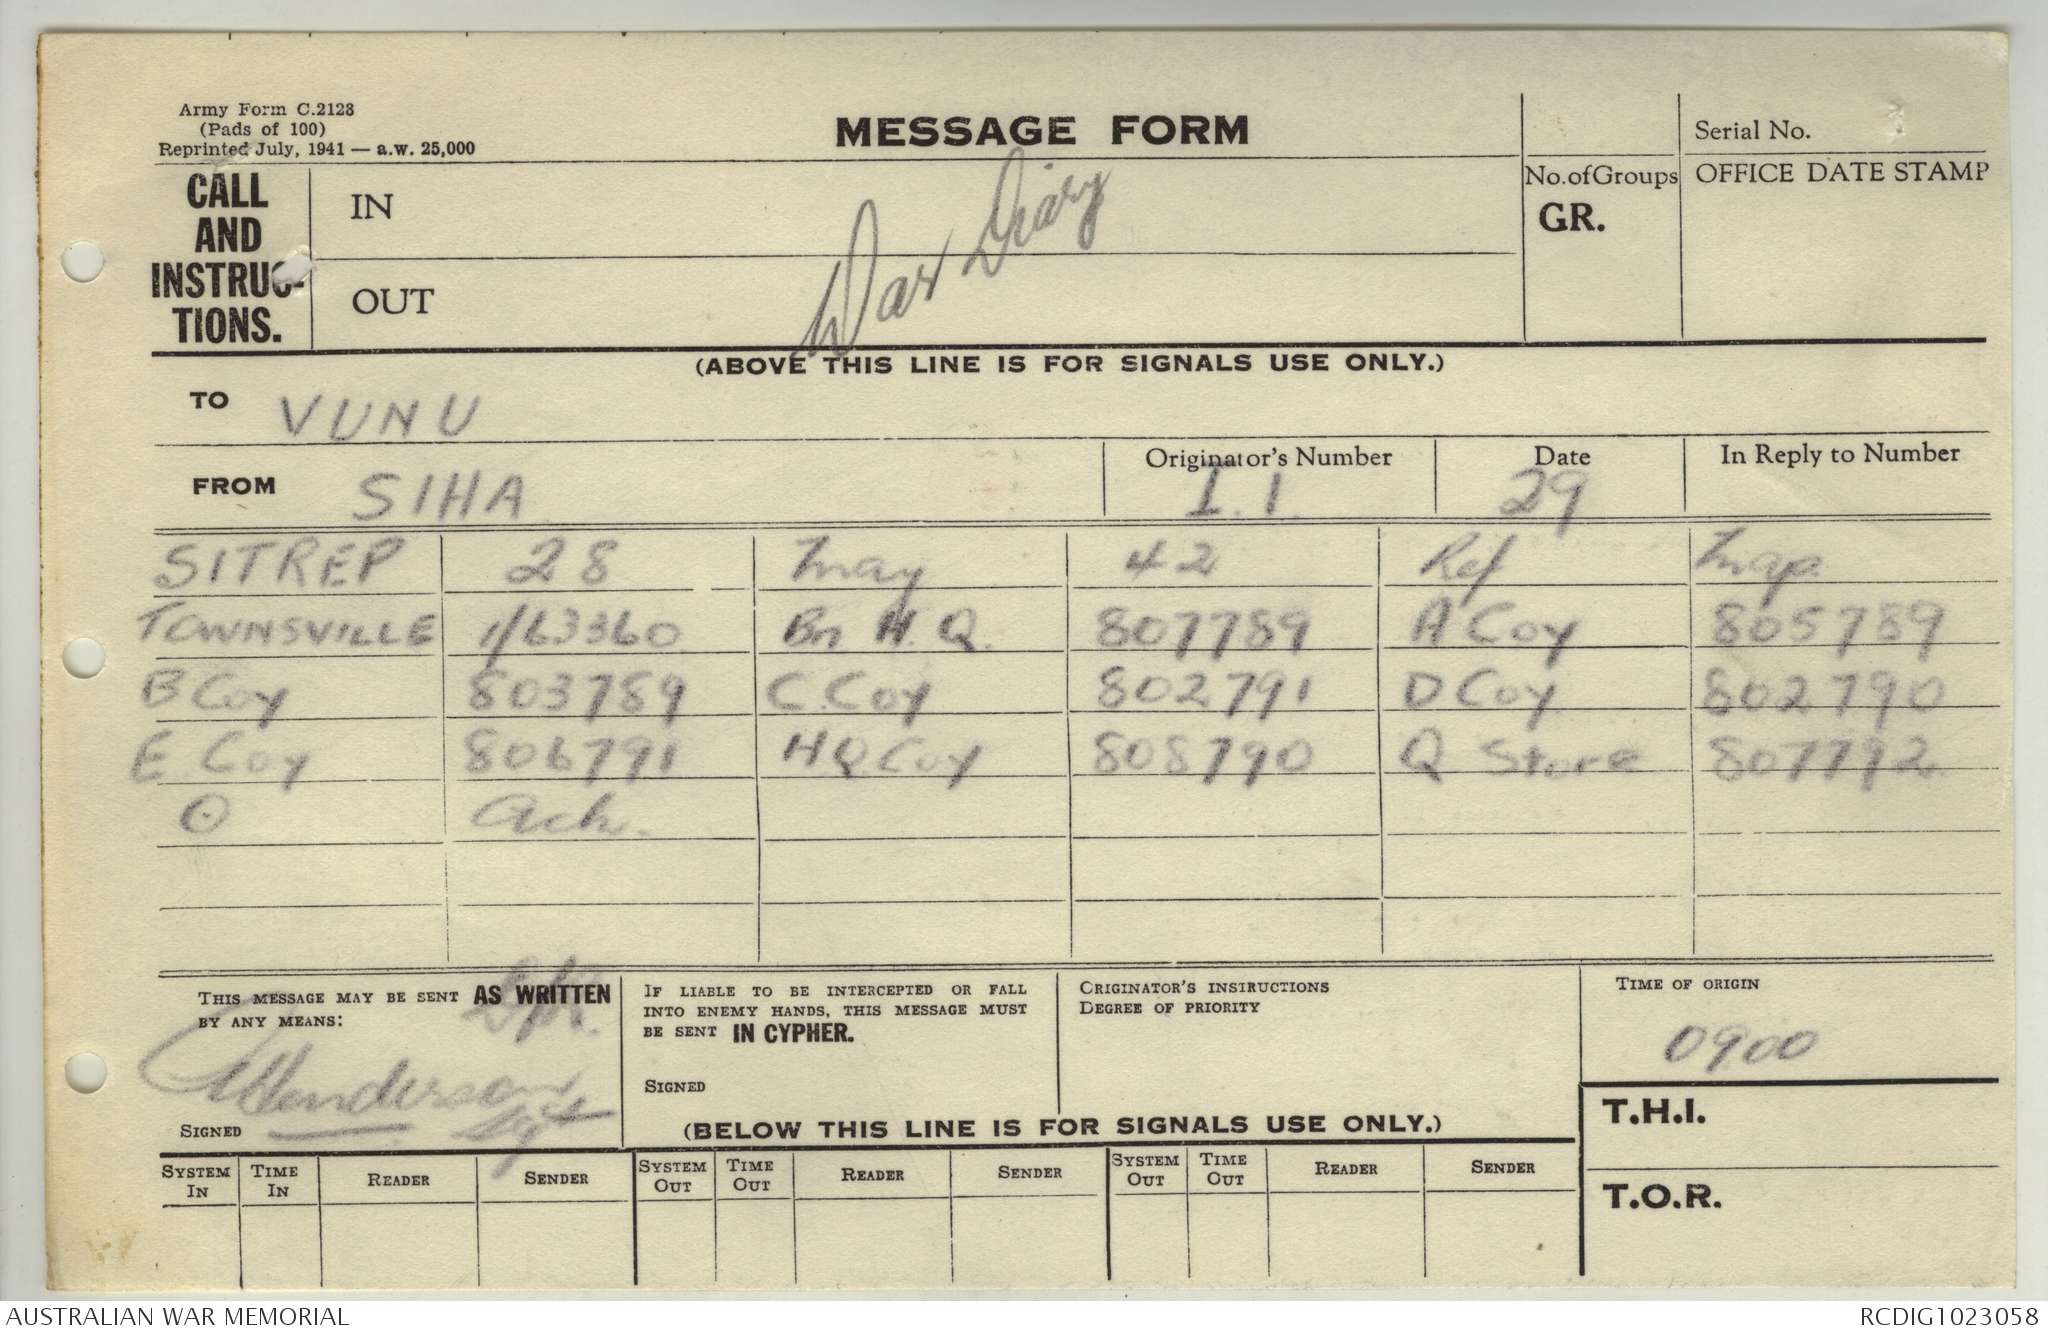 Army Form C.2128
(Pads of 100)
Reprinted July, 1941 — a.w. 25,000
MESSAGE FORM
Serial No.
CALL AND INSTRUC-TIONS.
IN
OUT
War Diary
No. of Groups
GR.
OFFICE DATE STAMP
(ABOVE THIS LINE IS FOR SIGNALS USE ONLY.)
TO VUNU
FROM SIHA
Originator's Number I.1.
Date 29
In Reply to Number
SITREP 28 May 42 Ref Map.
TOWNSVILLE 1/63360 Bn H.Q. 807789 A Coy 805789
B Coy 803789 C. Coy 802791 D Coy 802790
E. Coy 806791 H.Q. Coy 808790 Q Store 807792
Ack.
THIS MESSAGE MAY BE SENT AS WRITTEN
BY ANY MEANS:
Henderson
SIGNED
IF LIABLE TO BE INTERCEPTED OR FALL
INTO ENEMY HANDS, THIS MESSAGE MUST
BE SENT IN CYPHER.
SIGNED
ORIGINATOR'S INSTRUCTIONS
DEGREE OF PRIORITY
TIME OF ORIGIN
0900
(BELOW THIS LINE IS FOR SIGNALS USE ONLY.)
T.H.I.
T.O.R.
SYSTEM IN TIME IN READER SENDER SYSTEM OUT TIME OUT READER SENDER SYSTEM OUT TIME OUT READER SENDER
AUSTRALIAN WAR MEMORIAL
RCDIG1023058